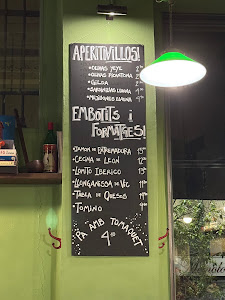 APERITIVILLOS!
• OLIVAS YEYE 2
• OLIVAS PICANTONA 2
• GILDA 2
• SARDINILLAS LUMACA 4
• MEJILLONES 4
EMBOTITS i
FORMATGES!
• JAMON DE EXTREMADURA 15
• CECINA DE LEON 12
• LOMITO IBERICO 13
• LLONGANISSA DE VIC 11
• TABLA DE QUESOS 19
• TOMINO 9
PÀ AMB TOMAQUET
4